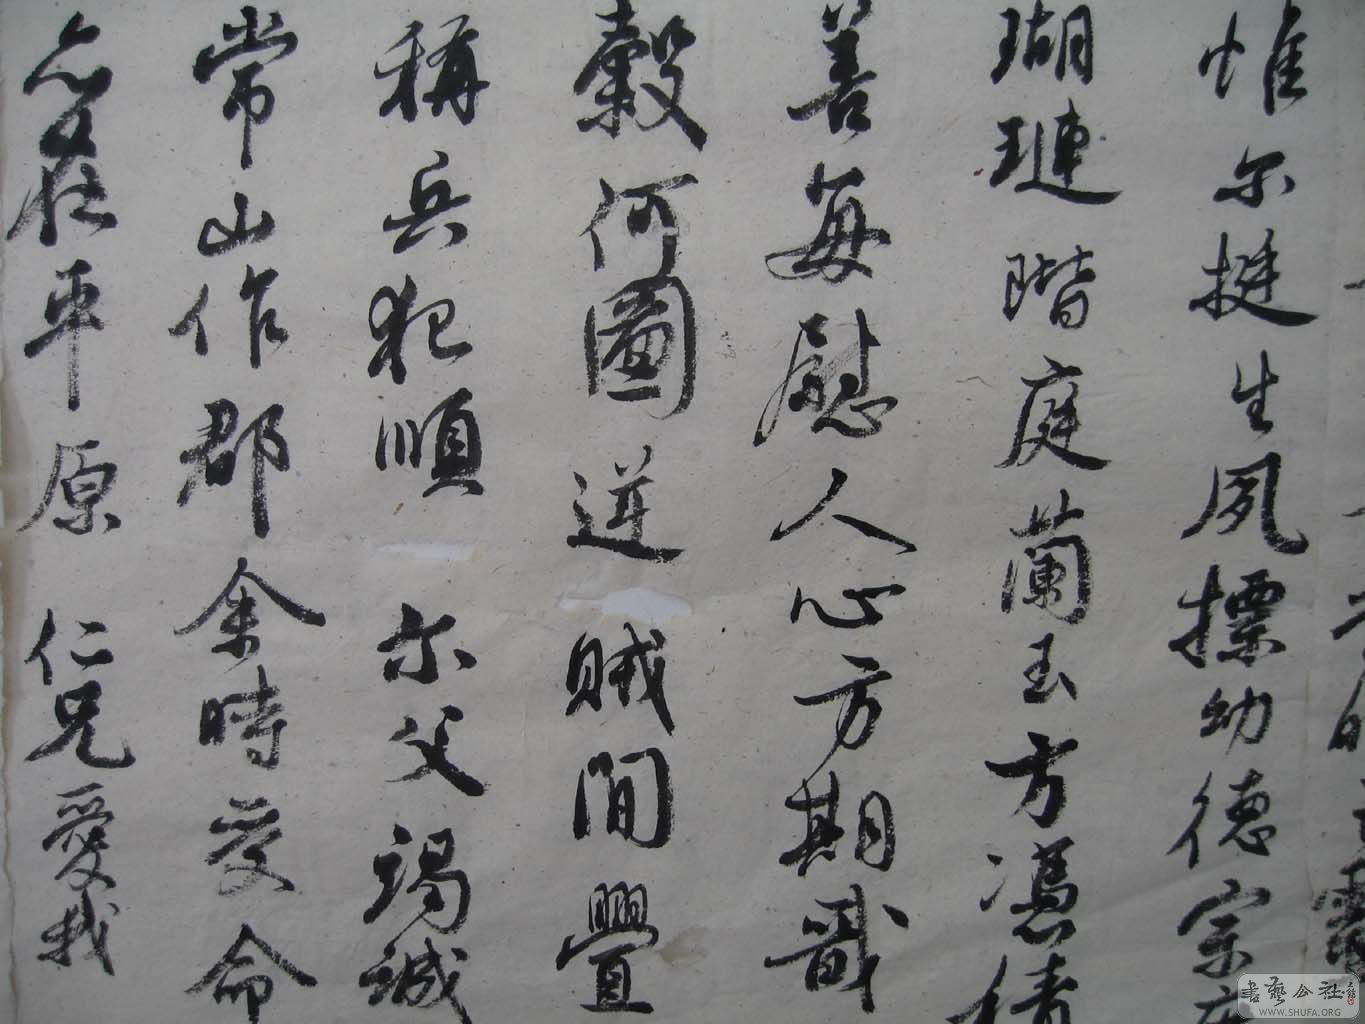 惟尔挺生夙標幼德宗
瑚璉階庭蘭玉方憑積
善每慰人心方期戩
穀何圖逆賊間舋
稱兵犯順尔父竭誠
常山作郡余時受命
亦在平原仁兄愛我
書藝公社
WWW.SHUFA.ORG